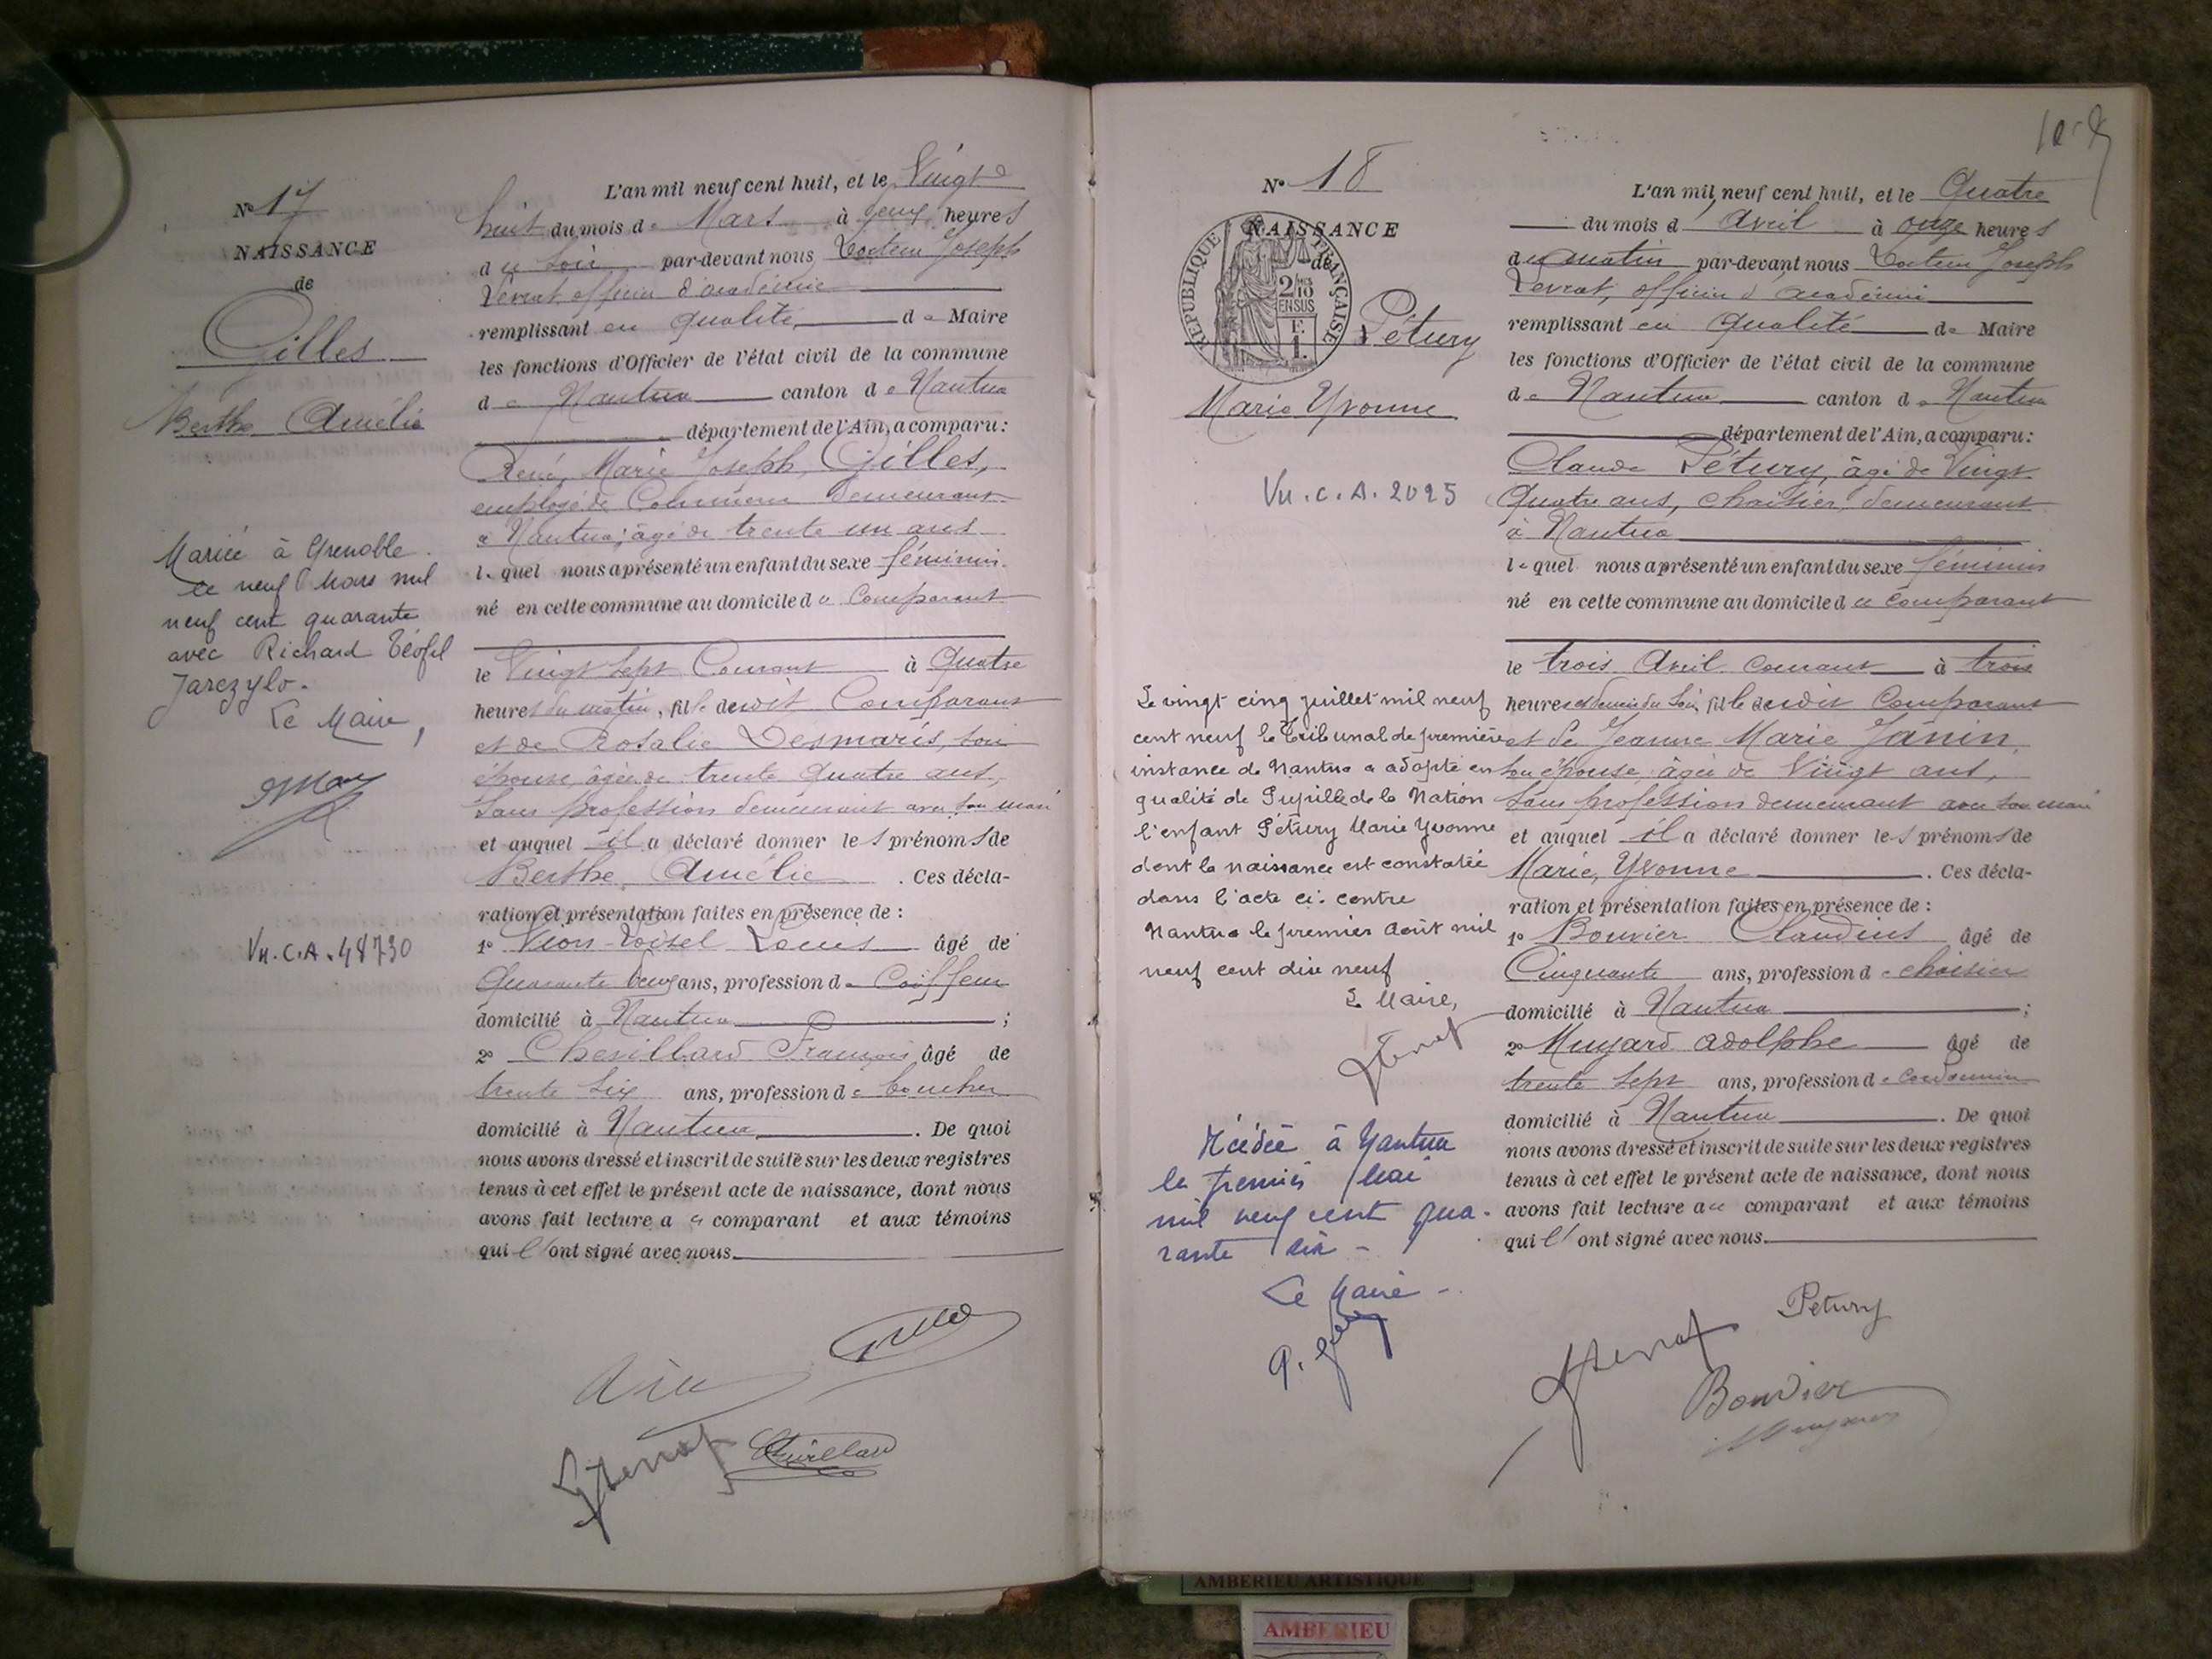 Nº 17
NAISSANCE
de
Gilles
Berthe Amélie
Mariée à Grenoble
le neuf Mars mil
neuf cent quarante
avec Richard Téofil
Jarczylo.
Le Maire,
Vu.C.A.48730
L'an mil neuf cent huit, et le Vingt
huit du mois de Mars à deux heures
du soir par-devant nous Docteur Joseph
Levrat, officier d'académie
remplissant en qualité de Maire
les fonctions d'Officier de l'état civil de la commune
de Nantua canton de Nantua
département de l'Ain, a comparu:
René, Marie Joseph, Gilles,
employé de Commerce demeurant
à Nantua; âgé de trente un ans
lequel nous a présenté un enfant du sexe féminin
né en cette commune au domicile du Comparant
le Vingt sept Courant à Quatre
heures du matin, fille dudit Comparant
et de Rosalie Desmaris, son
épouse, âgée de trente quatre ans,
sans profession demeurant avec son mari
et auquel il a déclaré donner les prénoms de
Berthe, Amélie. Ces décla-
ration et présentation faites en présence de :
1º Vion-Loisel Louis âgé de
Quarante deux ans, profession de Coiffeur
domicilié à Nantua ;
2º Chevillard François, âgé de
trente six ans, profession de boucher
domicilié à Nantua. De quoi
nous avons dressé et inscrit de suite sur les deux registres
tenus à cet effet le présent acte de naissance, dont nous
avons fait lecture au comparant et aux témoins
qui l'ont signé avec nous.
Nº 18
NAISSANCE
de
RÉPUBLIQUE FRANÇAISE
2/10
EN SUS
Pétury
Marie Yvonne
Vu.C.A. 2025
Le vingt cinq juillet mil neuf
cent neuf le Tribunal de première
instance de Nantua a adopté en
qualité de Pupille de la Nation
l'enfant Pétury Marie Yvonne
dont la naissance est constatée
dans l'acte ci-contre
Nantua le premier Août mil
neuf cent dix neuf
Le Maire,
Décédée à Nantua
le premier Mai
mil neuf cent qua-
rante six -
Le Maire -
L'an mil neuf cent huit, et le Quatre
du mois d'avril à onze heures
du matin par-devant nous Docteur Joseph
Levrat, officier d'académie
remplissant en qualité de Maire
les fonctions d'Officier de l'état civil de la commune
de Nantua canton de Nantua
département de l'Ain, a comparu:
Claude Pétury, âgé de Vingt
Quatre ans, chaisier, demeurant
à Nantua
lequel nous a présenté un enfant du sexe féminin
né en cette commune au domicile du comparant
le trois Avril courant à trois
heures et demie du soir, fille dudit Comparant
et de Jeanne Marie Janin,
son épouse, âgée de Vingt ans,
sans profession demeurant avec son mari
et auquel il a déclaré donner les prénoms de
Marie, Yvonne. Ces décla-
ration et présentation faites en présence de :
1º Bouvier Claudius âgé de
Cinquante ans, profession de chaisier
domicilié à Nantua ;
2º Muyard Adolphe âgé de
trente sept ans, profession de Cordonnier
domicilié à Nantua. De quoi
nous avons dressé et inscrit de suite sur les deux registres
tenus à cet effet le présent acte de naissance, dont nous
avons fait lecture au comparant et aux témoins
qui l'ont signé avec nous.
Pétury
Bouvier
AMBERIEU ARTISTIQUE
AMBERIEU